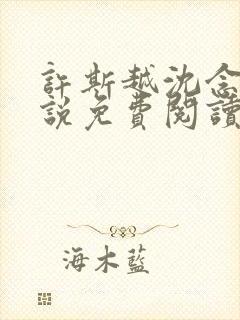 許斯越沈念
說免費閱讀
海木藍